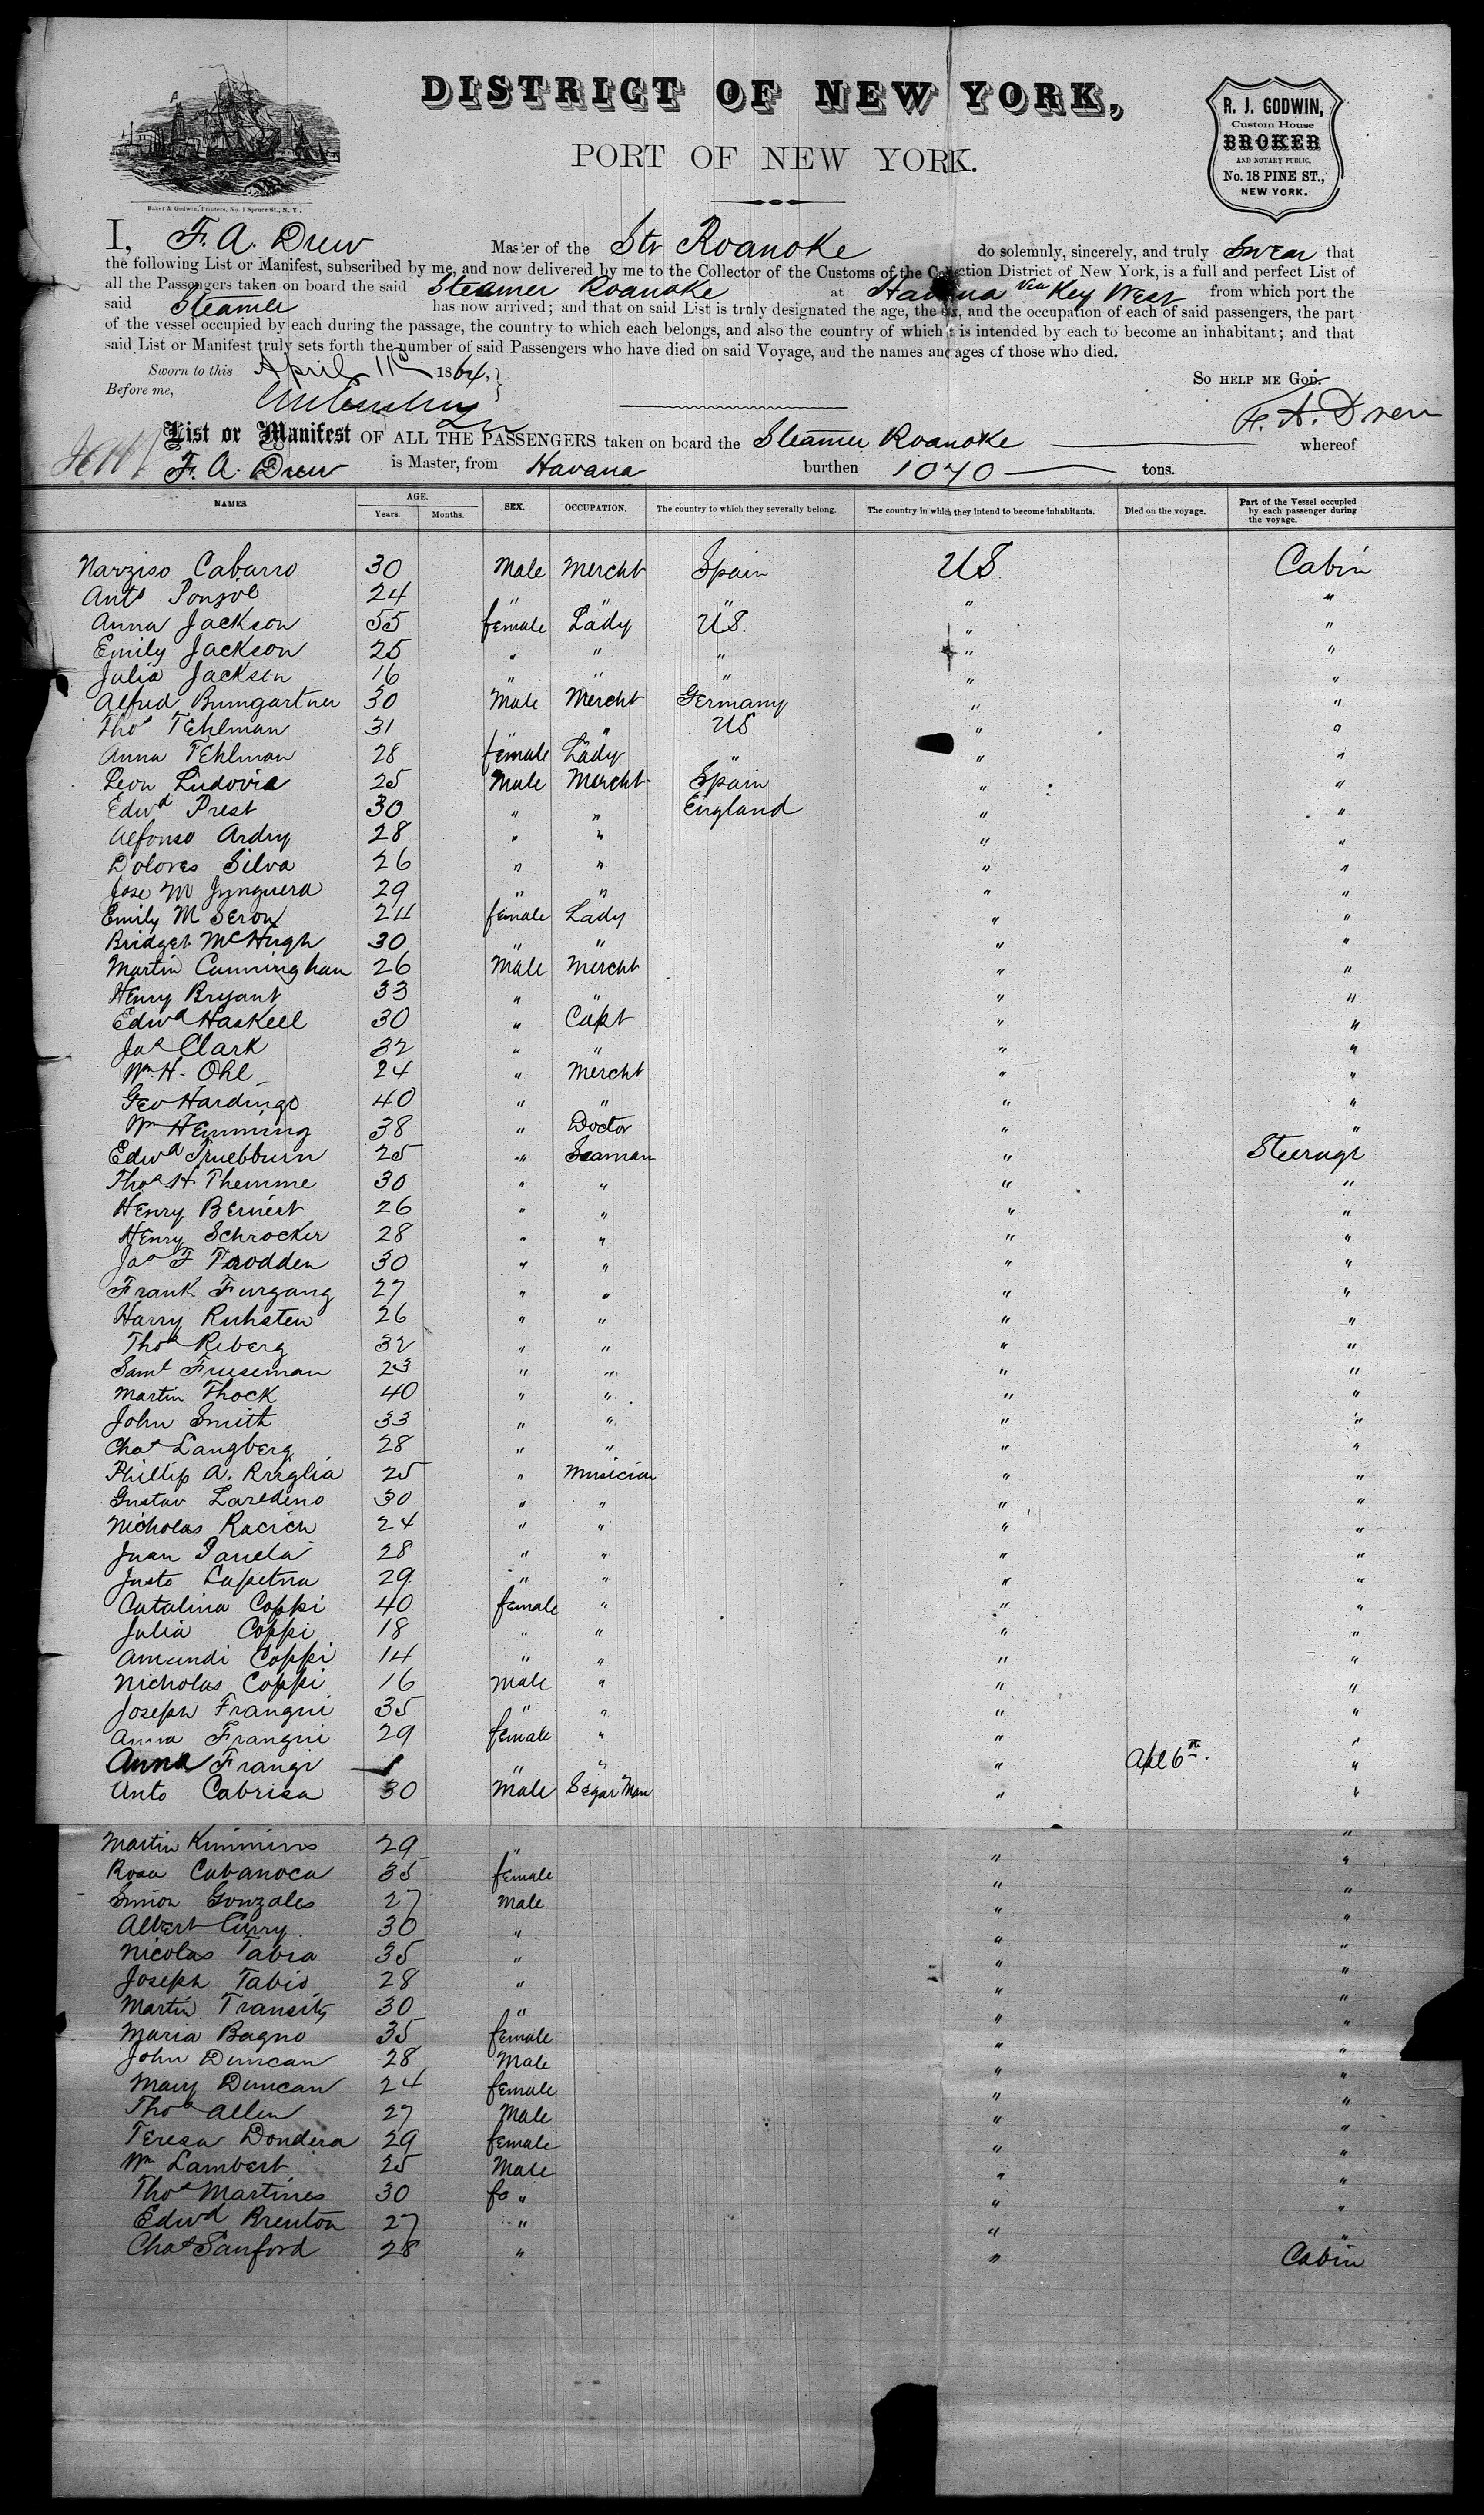 DISTRICT OF NEW YORK,
PORT OF NEW YORK.
R. J. GODWIN,
Custom House
BROKER
AND NOTARY PUBLIC,
No. 18 PINE ST.,
NEW YORK.
Baker & Godwin, Printers, No. 1 Spruce St., N. Y.
I, F. A. Drew Master of the Str Roanoke do solemnly, sincerely, and truly Swear that
the following List or Manifest, subscribed by me, and now delivered by me to the Collector of the Customs of the Collection District of New York, is a full and perfect List of
all the Passengers taken on board the said Steamer Roanoke at Havana via Key West from which port the
said Steamer has now arrived; and that on said List is truly designated the age, the sex, and the occupation of each of said passengers, the part
of the vessel occupied by each during the passage, the country to which each belongs, and also the country of which it is intended by each to become an inhabitant; and that
said List or Manifest truly sets forth the number of said Passengers who have died on said Voyage, and the names and ages of those who died.
Sworn to this April 11th 1864,
So help me God.
Before me,
F. A. Drew
List or Manifest OF ALL THE PASSENGERS taken on board the Steamer Roanoke whereof
F. A. Drew is Master, from Havana burthen 1070 tons.
NAMES AGE. Years. Months. SEX. OCCUPATION. The country to which they severally belong. The country in which they intend to become inhabitants. Died on the voyage. Part of the Vessel occupied by each passenger during the voyage.
Narziso Cabarro 30 Male Mercht Spain US. Cabin
Anto 24 " " " " "
Anna Jackson 55 female Lady US. " "
Emily Jackson 25 " " " " "
Julia Jackson 16 " " " " "
Alfred Bumgartner 30 Male Mercht Germany " "
Thos Tehlman 31 " " US " "
Anna Tehlman 28 female Lady " " "
Leon Ludovia 25 Male Mercht Spain " "
Edwd Prest 30 " " England " "
Alfonso Ardry 28 " " " "
Dolores Silva 26 " " " "
Jose M 29 " " " "
Emily M Seron 24 female Lady " "
Bridget McHugh 30 " " " "
Martin Cunningham 26 Male Mercht " "
Henry Bryant 33 " " " "
Edwd Haskell 30 " Capt " "
Jas Clark 32 " " " "
Wm H. Ohl 24 " Mercht " "
Geo Hardings 40 " " " "
Wm Hemming 38 " Doctor " "
Edwd Truebburn 25 " Seaman " Steerage
Thos H Themme 30 " " " "
Henry Bernert 26 " " " "
Henry Schrocker 28 " " " "
Jas F Trodden 30 " " " "
Frank Furgang 27 " " " "
Harry Ruhsten 26 " " " "
Thos Reberg 32 " " " "
Saml Fruseman 23 " " " "
Martin Thock 40 " " " "
John Smith 33 " " " "
Chas Langberg 28 " " " "
Phillip A. Briglia 25 " Musician " "
Gustav Laredeno 30 " " " "
Nicholas Racich 24 " " " "
Juan 28 " " " "
Justo Lapetna 29 " " " "
Catalina Coppi 40 female " " "
Julia Coppi 18 " " " "
Amandi Coppi 14 " " " "
Nicholas Coppi 16 Male " " "
Joseph Frangni 35 " " " "
Anna Frangni 29 female " " "
Anna Frangi 1 " " " Apl 6th. "
Anto Cabrisa 30 Male Segar Man " "
Martin Kimmins 29 " " "
Rosa Cabanoca 35 female " "
Simon Gonzales 27 Male " "
Albert Curry 30 " " "
Nicolas Tabia 35 " " "
Joseph Tabio 28 " " "
Martin Transity 30 " " "
Maria Bagno 35 female " "
John Duncan 28 Male " "
Mary Duncan 24 female " "
Thos Allen 27 Male " "
Teresa Dondera 29 female " "
Wm Lambert 25 Male " "
Thos Martines 30 fo " " "
Edwd Brenton 27 " " "
Chas Sanford 28 " " Cabin